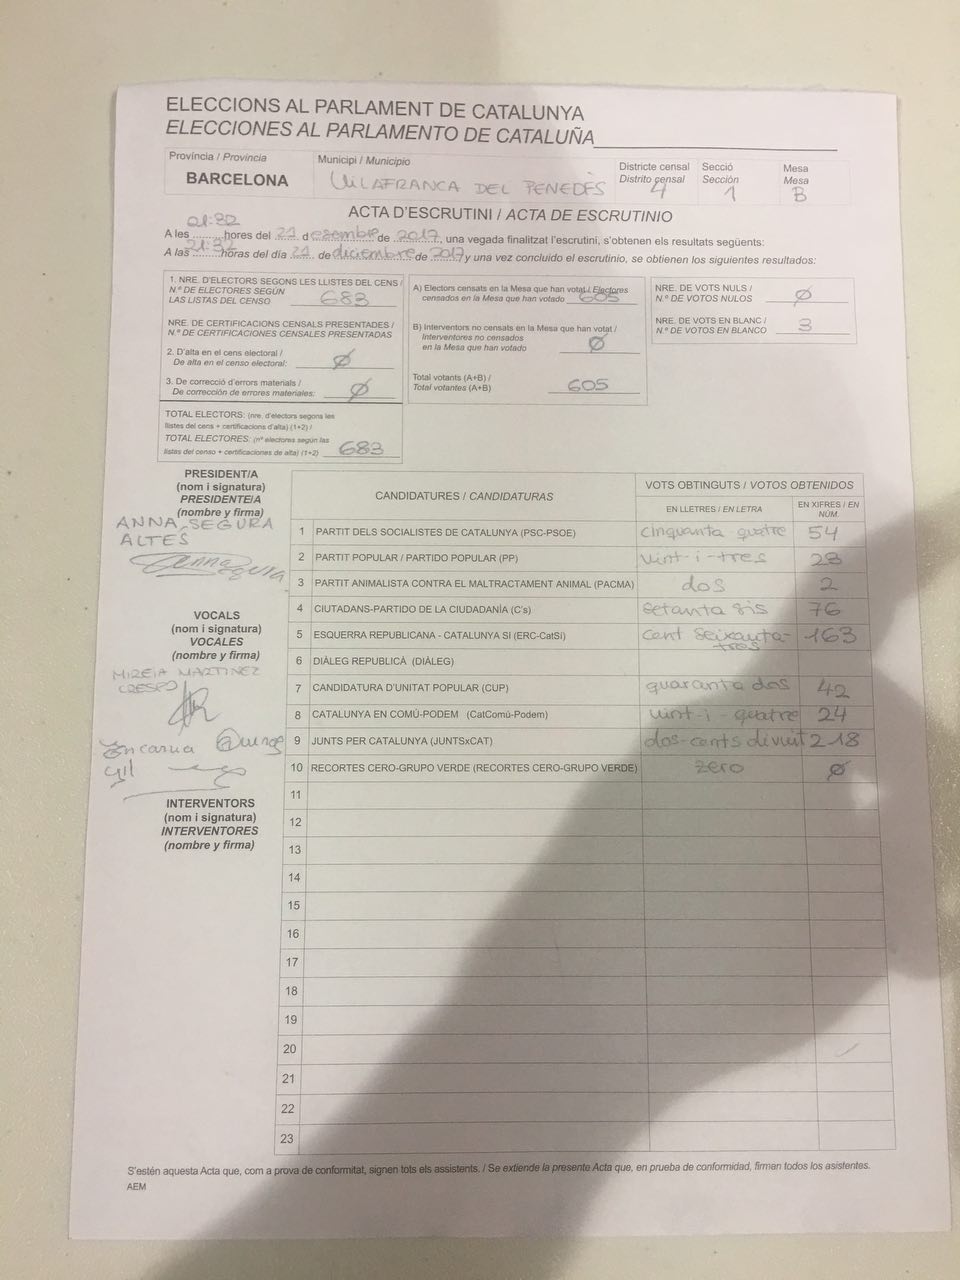 ELECCIONS AL PARLAMENT DE CATALUNYA
ELECCIONES AL PARLAMENTO DE CATALUÑA
Província / Provincia
BARCELONA
Municipi / Municipio
VILAFRANCA DEL PENEDÈS
Districte censal
Distrito censal
4
Secció
Sección
1
Mesa
Mesa
B
ACTA D'ESCRUTINI / ACTA DE ESCRUTINIO
21:32
A les ........hores del 21 d esembre de 2017, una vegada finalitzat l'escrutini, s'obtenen els resultats següents:
21:32
A las ........horas del día 21 de diciembre de 2017 y una vez concluido el escrutinio, se obtienen los siguientes resultados:
1. NRE. D'ELECTORS SEGONS LES LLISTES DEL CENS /
N.º DE ELECTORES SEGÚN
LAS LISTAS DEL CENSO 683
NRE. DE CERTIFICACIONS CENSALS PRESENTADES /
N.º DE CERTIFICACIONES CENSALES PRESENTADAS
2. D'alta en el cens electoral /
De alta en el censo electoral: Ø
3. De correcció d'errors materials /
De corrección de errores materiales: Ø
TOTAL ELECTORS: (nre. d'electors segons les
llistes del cens + certificacions d'alta) (1+2) /
TOTAL ELECTORES: (nº electores según las
listas del censo + certificaciones de alta) (1+2) 683
A) Electors censats en la Mesa que han votat / Electores
censados en la Mesa que han votado 605
B) Interventors no censats en la Mesa que han votat /
Interventores no censados
en la Mesa que han votado Ø
Total votants (A+B) /
Total votantes (A+B) 605
NRE. DE VOTS NULS /
N.º DE VOTOS NULOS Ø
NRE. DE VOTS EN BLANC /
N.º DE VOTOS EN BLANCO 3
PRESIDENT/A
(nom i signatura)
PRESIDENTE/A
(nombre y firma)
ANNA SEGURA
ALTES
VOCALS
(nom i signatura)
VOCALES
(nombre y firma)
MIREIA MARTINEZ
CRESPO
Encarna
Gil
INTERVENTORS
(nom i signatura)
INTERVENTORES
(nombre y firma)
CANDIDATURES / CANDIDATURAS
VOTS OBTINGUTS / VOTOS OBTENIDOS
EN LLETRES / EN LETRA
EN XIFRES / EN NÚM.
1 PARTIT DELS SOCIALISTES DE CATALUNYA (PSC-PSOE) cinquanta quatre 54
2 PARTIT POPULAR / PARTIDO POPULAR (PP) vint-i-tres 23
3 PARTIT ANIMALISTA CONTRA EL MALTRACTAMENT ANIMAL (PACMA) dos 2
4 CIUTADANS-PARTIDO DE LA CIUDADANÍA (C's) setanta sis 76
5 ESQUERRA REPUBLICANA - CATALUNYA SI (ERC-CatSí) cent seixanta-tres 163
6 DIÀLEG REPUBLICÀ (DIÀLEG)
7 CANDIDATURA D'UNITAT POPULAR (CUP) quaranta dos 42
8 CATALUNYA EN COMÚ-PODEM (CatComú-Podem) vint-i-quatre 24
9 JUNTS PER CATALUNYA (JUNTSxCAT) dos-cents divuit 218
10 RECORTES CERO-GRUPO VERDE (RECORTES CERO-GRUPO VERDE) zero Ø
11
12
13
14
15
16
17
18
19
20
21
22
23
S'estén aquesta Acta que, com a prova de conformitat, signen tots els assistents. / Se extiende la presente Acta que, en prueba de conformidad, firman todos los asistentes.
AEM